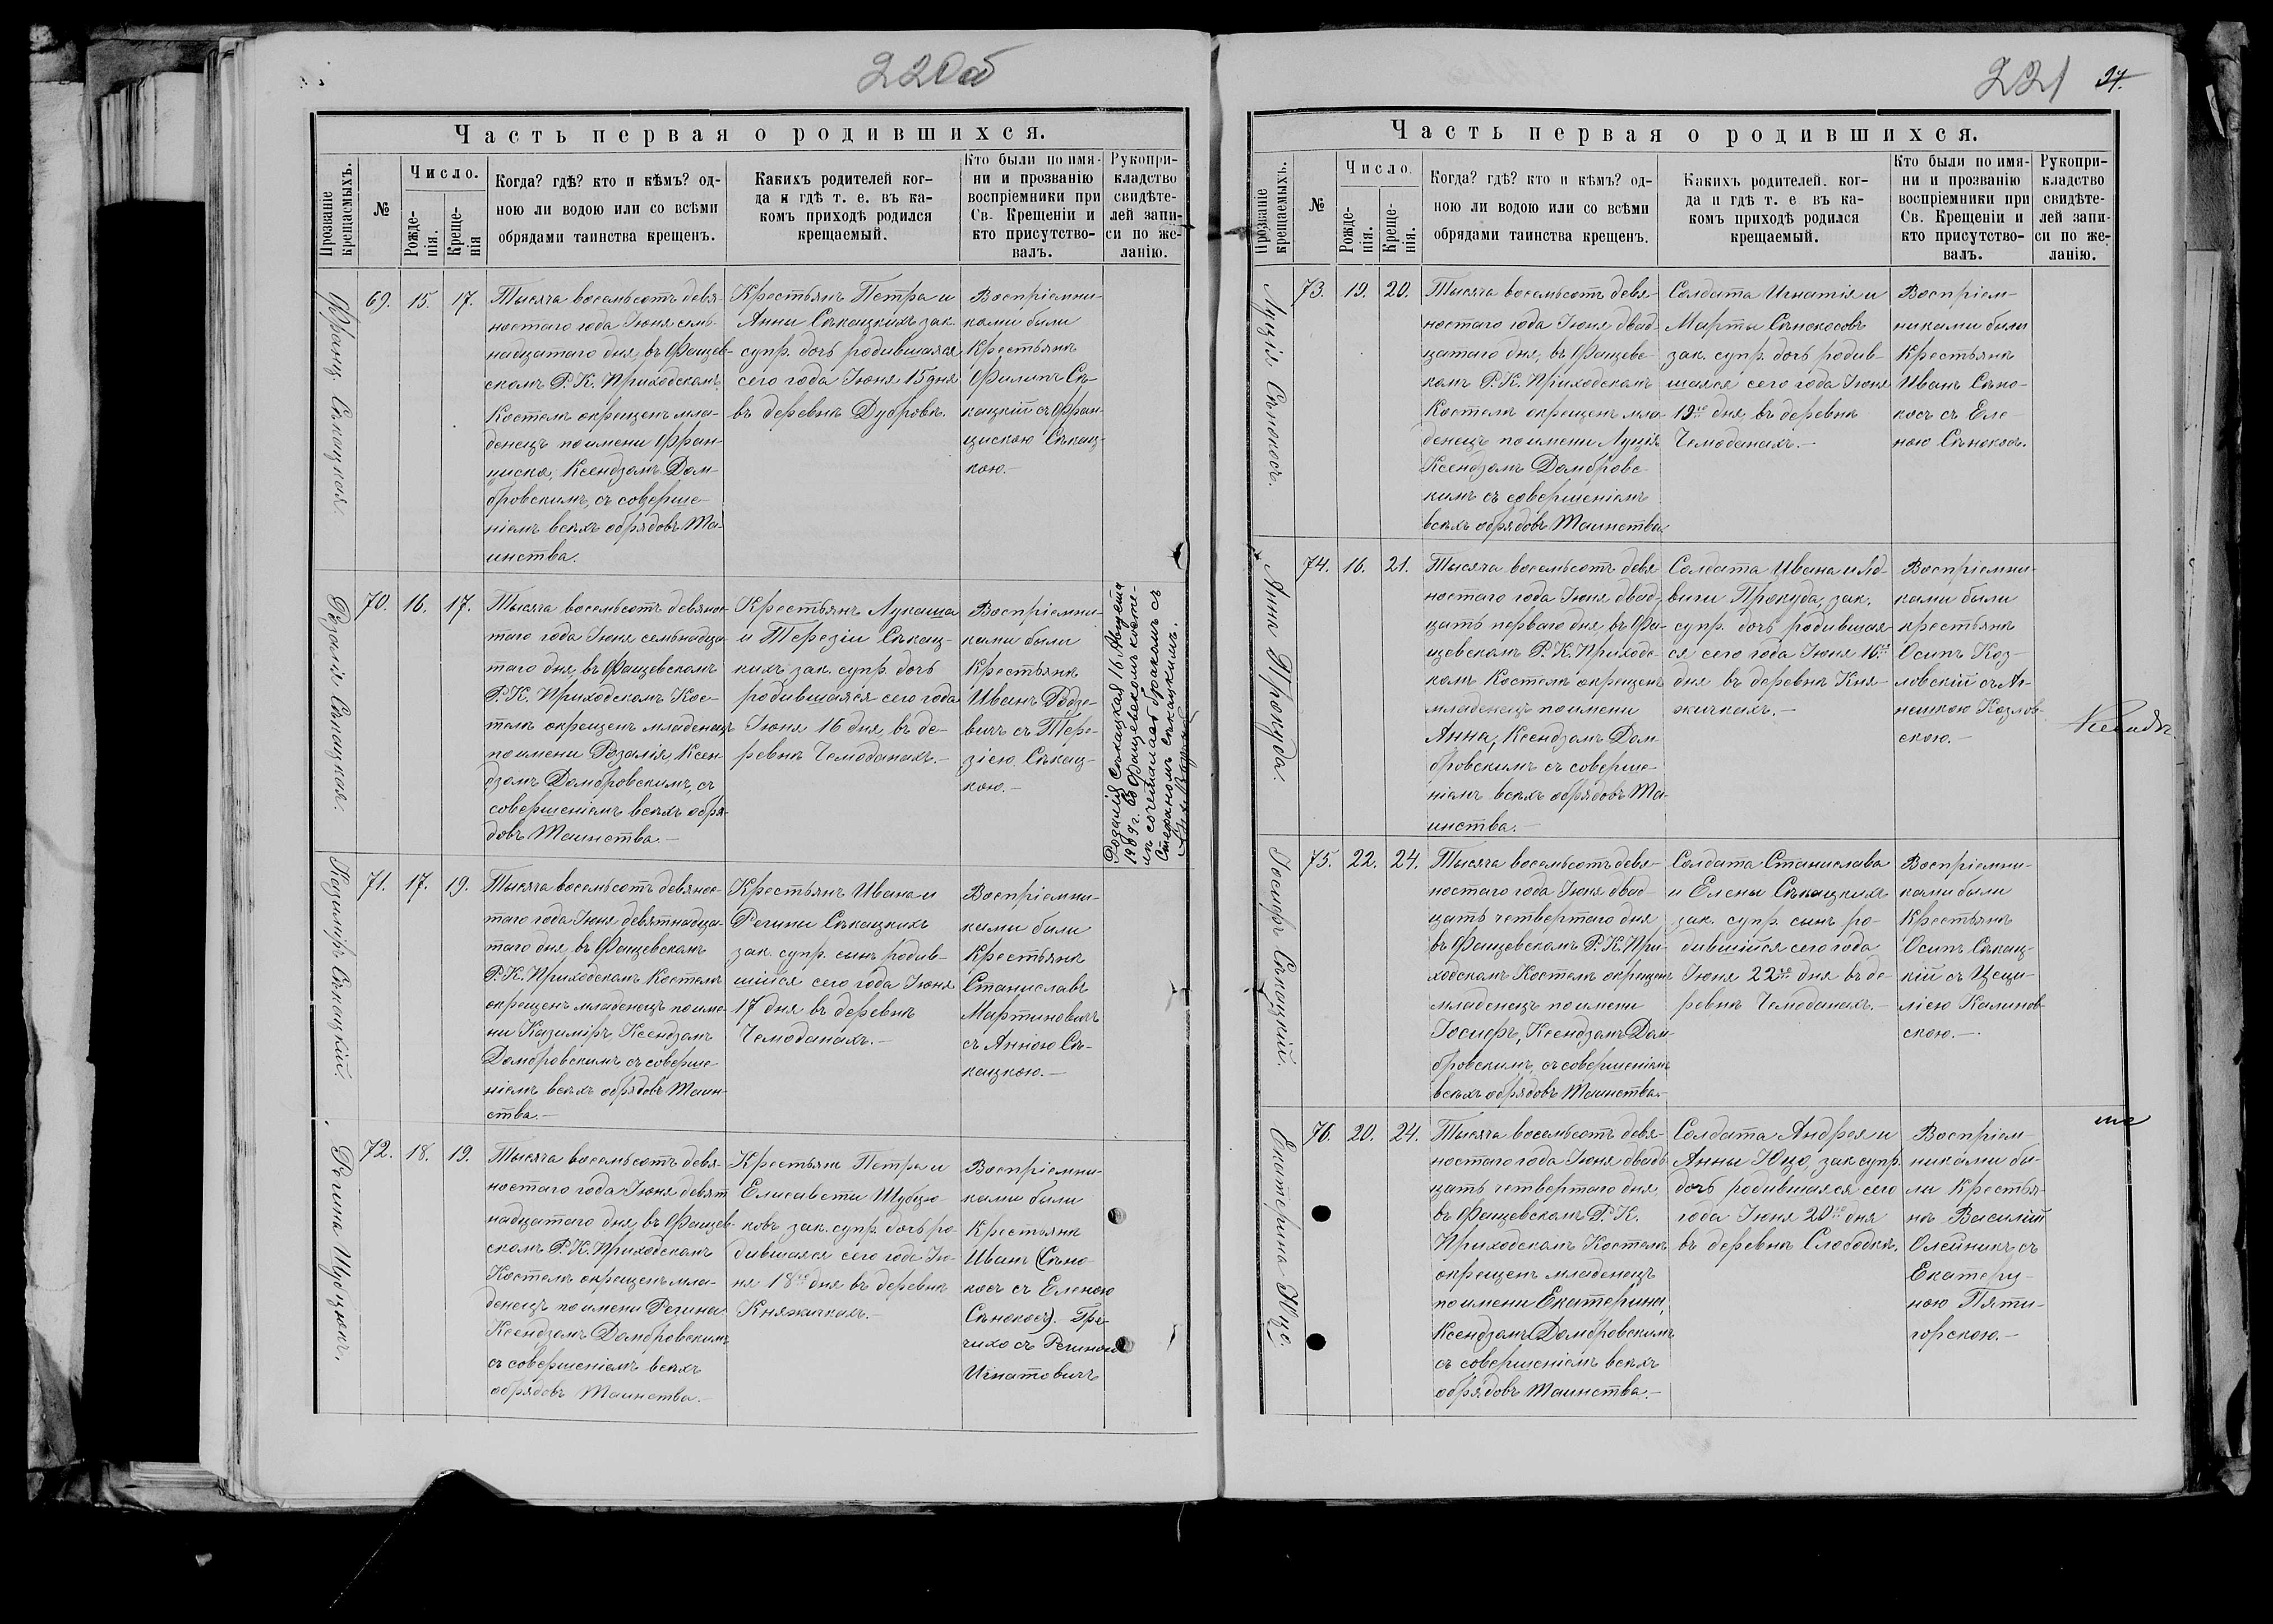 220об
Часть первая о родившихся.
Прозваніе крещаемыхъ.
№
Число.
Рожде-
нія.
Креще-
нія
Когда? гдѣ? кто и кѣмъ? од-
ною ли водою или со всѣми
обрядами таинства крещенъ.
Какихъ родителей ког-
да и гдѣ т. е. въ ка-
комъ приходѣ родился
крещаемый.
Кто были по имя-
ни и прозванію
воспріемники при
Св. Крещеніи и
кто присутство-
валъ.
Рукопри-
кладство
свидѣте-
лей запи-
си по же-
ланію.
Франц. Сѣкацкая
69. 15. 17.
Тысяча восемьсотъ девя-
ностаго года Іюня семь-
надцатаго дня, въ Фащев-
скомъ Р. К. Приходскомъ
Костелѣ окрещенъ мла-
денецъ по имени Фран-
циска, Ксендзомъ Дом-
бровскимъ, съ соверше-
ніемъ всѣхъ обрядовъ Та-
инства.
Крестьянъ Петра и
Анны Сѣкацкихъ зак.
супр. дочь родившаяся
сего года Іюня 15 дня
въ деревнѣ Дубровкѣ.
Воспріемни-
ками были
Крестьяне
Филипъ Сѣ-
кацкій съ Фран-
цискою Сѣкац-
кою.-
Розалія Сѣкацкая.
70. 16. 17.
Тысяча восемьсотъ девянос-
таго года Іюня семьнадца-
таго дня, въ Фащевскомъ
Р. К. Приходскомъ Кос-
телѣ окрещенъ младенецъ
по имени Розалія, Ксен-
дзомъ Домбровскимъ, съ
совершеніемъ всѣхъ обря-
довъ Таинства.-
Крестьянъ Лукаша
и Терезіи Сѣкац-
кихъ зак. супр. дочь
родившаяся сего года
Іюня 16 дня въ де-
ревнѣ Чемоданахъ.-
Воспріемни-
ками были
Крестьяне
Иванъ Родзе-
вичъ съ Тере-
зіею Сѣкац-
кою.-
Розалія Сѣкацкая 16 Августа
1909 г. въ Фащевскомъ косте-
лѣ сочеталась бракомъ съ
Стефаномъ Сѣкацкимъ.
Казиміръ Сѣкацкій.
71. 17. 19.
Тысяча восемьсотъ девянос-
таго года Іюня девятнадца-
таго дня, въ Фащевскомъ
Р. К. Приходскомъ Костелѣ
окрещенъ младенецъ по име-
ни Казиміръ, Ксендзомъ
Домбровскимъ съ соверше-
ніемъ всѣхъ обрядовъ Таин-
ства.-
Крестьянъ Ивана и
Регины Сѣкацкихъ
зак. супр. сынъ родив-
шійся сего года Іюня
17 дня въ деревнѣ
Чемоданахъ.-
Воспріемни-
ками были
Крестьяне
Станиславъ
Мартиновичъ
съ Анною Сѣ-
кацкою.-
Регина Шубцюкъ.
72. 18. 19.
Тысяча восемьсотъ девя-
ностаго года Іюня девят-
надцатаго дня, въ Фащев-
скомъ Р. К. Приходскомъ
Костелѣ окрещенъ мла-
денецъ по имени Регина
Ксендзомъ Домбровскимъ
съ совершеніемъ всѣхъ
обрядовъ Таинства.-
Крестьянъ Петра и
Елисаветы Шубцю-
ковъ зак. супр. дочь ро-
дившаяся сего года Ію-
ня 18го дня въ деревнѣ
Княжичкахъ.-
Воспріемни-
ками были
Крестьяне
Иванъ (Сѣно-
косъ съ Еленою
Сѣнокосъ). Гре-
чихо съ Региною
Игнатовичъ
221
Часть первая о родившихся.
Прозваніе крещаемыхъ.
№
Число.
Рожде-
нія.
Креще-
нія.
Когда? гдѣ? кто и кѣмъ? од-
ною ли водою или со всѣми
обрядами таинства крещенъ.
Какихъ родителей. ког-
да и гдѣ т. е въ ка-
комъ приходѣ родился
крещаемый.
Кто были по имя-
ни и прозванію
воспріемники при
Св. Крещеніи и
кто присутство-
валъ.
Рукопри-
кладство
свидѣте-
лей запи-
си по же-
ланію.
Луція Сѣнокосъ.
73. 19. 20.
Тысяча восемьсотъ девя-
ностаго года Іюня двад-
цатаго дня, въ Фащевс-
комъ Р. К. Приходскомъ
Костелѣ окрещенъ мла-
денецъ по имени Луція
Ксендзомъ Домбровс-
кимъ съ совершеніемъ
всѣхъ обрядовъ Таинства.
Солдата Игнатія и
Марты Сѣнокосовъ
зак. супр. дочь родив-
шаяся сего года Іюня
19го дня въ деревнѣ
Чемоданахъ.-
Воспріем-
никами были
Крестьяне
Иванъ Сѣно-
косъ съ Еле-
ною Сѣнокосъ.
Анна Прокуда.
74. 16. 21.
Тысяча восемьсотъ девя-
ностаго года Іюня двад-
цать перваго дня, въ Фа-
щевскомъ Р. К. Приходс-
комъ Костелѣ окрещенъ
младенецъ по имени
Анна, Ксендзомъ Дом-
бровскимъ съ соверше-
ніемъ всѣхъ обрядовъ Та-
инства.-
Солдата Ивана и Яд-
виги Прокуда, зак.
супр. дочь родившая-
ся сего года Іюня 16го
дня въ деревнѣ Кня-
жичкахъ.-
Воспріемни-
ками были
крестьяне
Осипъ Коз-
ловскій съ Аг-
нешкою Козлов-
скою.-
Іосифъ Сѣкацкій.
75. 22. 24.
Тысяча восемьсотъ девя-
ностаго года Іюня двад-
цать четвертаго дня
въ Фащевскомъ Р. К. При-
ходскомъ Костелѣ окрещенъ
младенецъ по имени
Іосифъ, Ксендзомъ Дом-
бровскимъ, съ совершеніемъ
всѣхъ обрядовъ Таинства.
Солдата Станислава
и Елены Сѣкацкихъ
зак. супр. сынъ ро-
дившійся сего года
Іюня 22го дня въ де-
ревнѣ Чемоданахъ.-
Воспріемни-
ками были
Крестьяне
Осипъ Сѣкац-
кій съ Цеци-
ліею Калинов-
скою.-
Екатерина Юцо.
76. 20. 24.
Тысяча восемьсотъ девя-
ностаго года Іюня двад-
цать четвертаго дня,
въ Фащевскомъ Р. К.
Приходскомъ Костелѣ
окрещенъ младенецъ
по имени Екатерина,
Ксендзомъ Домбровскимъ
съ совершеніемъ всѣхъ
обрядовъ Таинства.-
Солдата Андрея и
Анны Юцо, зак супр.
дочь родившаяся сего
года Іюня 20го дня
въ деревнѣ Слободкѣ.
Воспріем-
никами бы-
ли Крестья-
не Василій
Олейникъ съ
Екатери-
ною Пяти-
горскою.-